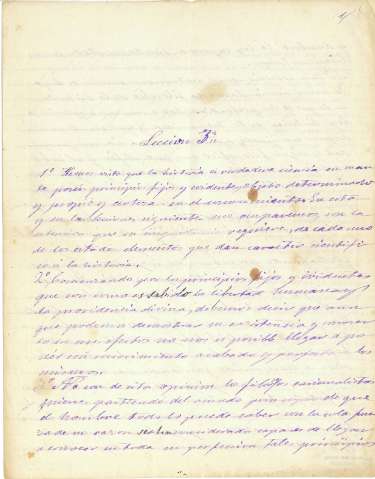 Leccion 3ª
1º Hemos visto que la historia es verdadera ciencia en cuan-
to posee principios fijos y evidentes, objeto determinado
y propio y certeza en el conocimiento. En esta
y en las lecciones siguientes nos ocuparemos con la
estension que su requiere, de cada uno
de los citados elementos que dan caracter cientifi-
co á la historia.
2º Comenzando por los principios fijos y evidentes
que son como es sabido la libertad humana y
la providencia divina, debemos decir que aun
que podemos demostrar su existencia y
en sus efectos no nos es posible llegar a po-
seer un conocimiento acabado y perfecto de los
mismos.
3º No son de esta opinion los filosofos racionalistas
quienes partiendo del mismo principio de que
el hombre todo lo puede saber con la sola fuer-
za de su razon se han considerado capaces de llegar
a conocer en toda su perfeccion tales principios